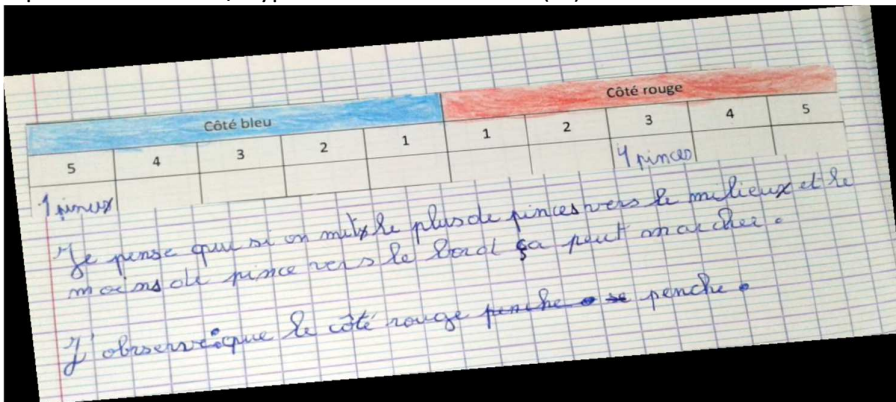 Côté bleu Côté rouge
5 4 3 2 1 1 2 3 4 5
1 pinux 4 pinces
Je pense que si on mitx le plus de pinces vers le milieux et le
moins de pince vers le bord ça peut marcher.
J'observe que le côté rouge penche se penche.